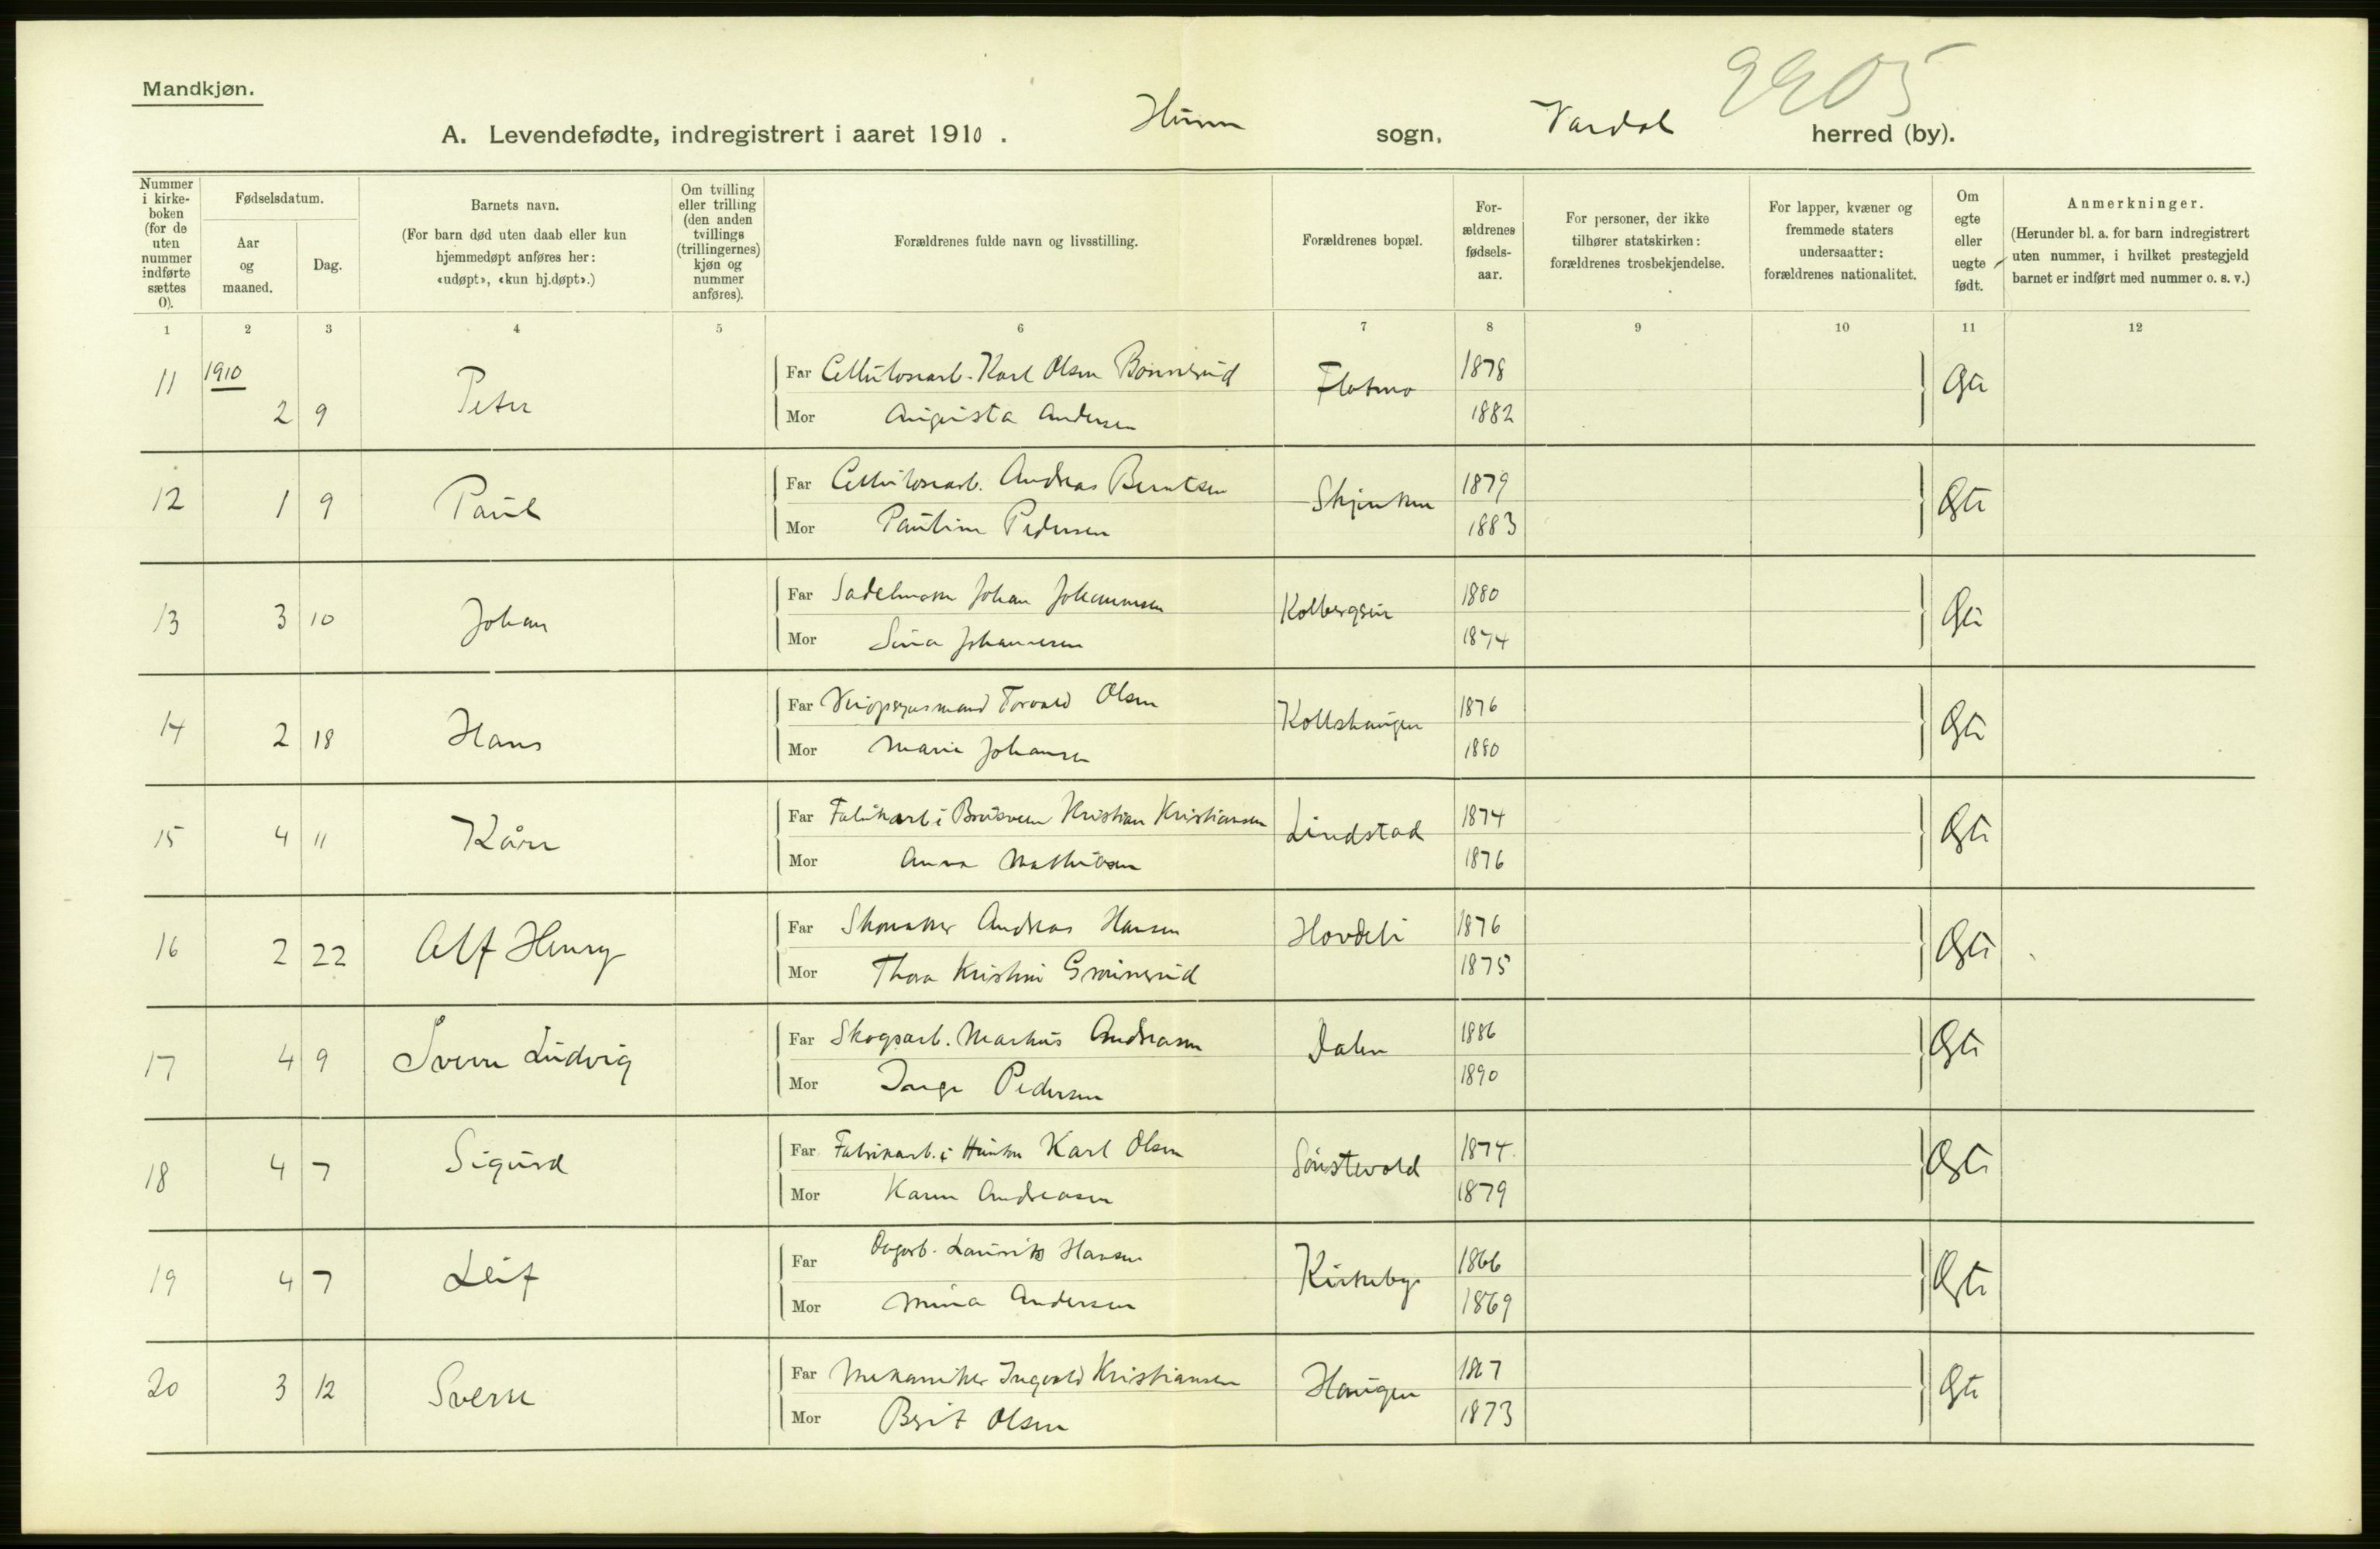 Mandkjøn.
2905
A. Levendefødte, indregistrert i aaret 1910. Hunn sogn, Vardal herred (by).
Nummer i kirke-boken (for de uten nummer indførte sættes 0).
Fødselsdatum.
Aar og maaned.
Dag.
Barnets navn.
(For barn død uten daab eller kun hjemmedøpt anføres her: «udøpt», «kun hj.døpt».)
Om tvilling eller trilling (den anden tvillings (trillingernes) kjøn og nummer anføres).
Forældrenes fulde navn og livsstilling.
Forældrenes bopæl.
For-ældrenes fødsels-aar.
For personer, der ikke tilhører statskirken: forældrenes trosbekjendelse.
For lapper, kvæner og fremmede staters undersaatter: forældrenes nationalitet.
Om egte eller uegte født.
Anmerkninger.
(Herunder bl. a. for barn indregistrert uten nummer, i hvilket prestegjeld barnet er indført med nummer o. s. v.)
1 2 3 4 5 6 7 8 9 10 11 12
11 1910 2 9 Peter Far Cellulosearb. Karl Olsen Bønnerud Flatmo 1878 Gte
Mor Augusta Andersen 1882
12 1 9 Paul Far Cellulosearb. Andreas Berntsen 1879 Ægte
Mor Pauline Pedersen 1883
13 3 10 Johan Far Sadelmaker Johan Johannesen 1880 Ægte
Mor Sina Johannesen 1874
14 2 18 Hans Far Torvald Olsen Kollshaugen 1876 Ægte
Mor Marie Johansen 1880
15 4 11 Kåre Far Fabrikarb. i Brusveen Kristian Kristiansen Lindstad 1874 Ægte
Mor Anna Mathisen 1876
16 2 22 Alf Henry Far Skomaker Andreas Hansen Hovdeli 1876 Ægte
Mor Thora Kristine 1875
17 4 9 Sverre Ludvig Far Skogsarb. Markus Andreasen Dalen 1886 Ægte
Mor Inga Pedersen 1890
18 4 7 Sigurd Far Fabrikarb. i Hunton Karl Olsen Sønstevold 1874 Ægte
Mor Karen Andreasen 1879
19 4 7 Leif Far Dagarb. Laurits Hansen Kirkeby 1866 Ægte
Mor Mina Andersen 1869
20 3 12 Sverre Far Mekaniker Ingvald Kristiansen Haugen 1867 Ægte
Mor Berit Olsen 1873